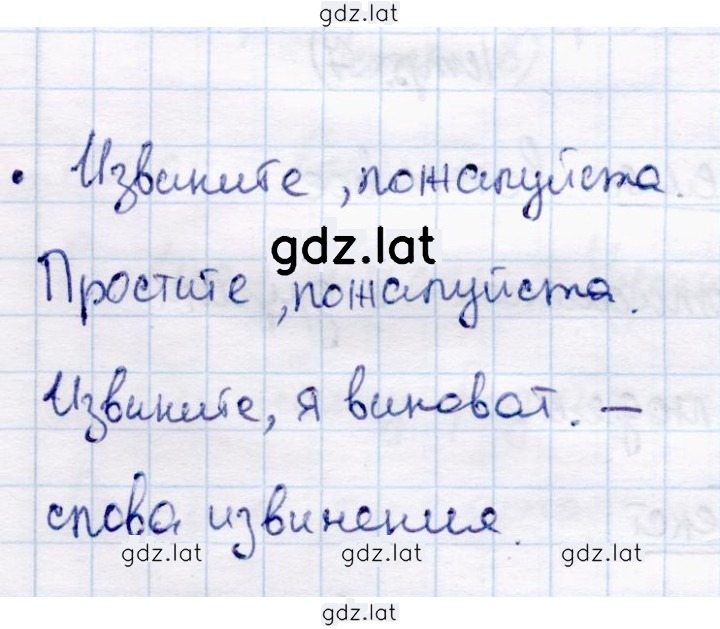 gdz.lat
• Извините, пожалуйста.
gdz.lat
Простите, пожалуйста.
Извините, я виноват. —
слова извинения.
gdz.lat gdz.lat gdz.lat
gdz.lat